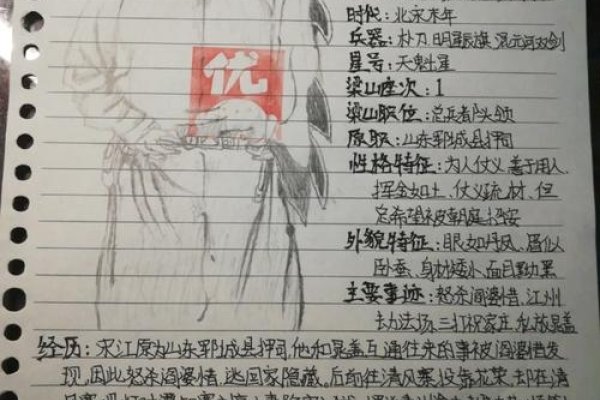 时代：北宋末年
兵器：朴刀、明星辰旗、混元河双剑
星号：天魁星
优
梁山座次：1
梁山职位：总兵都头领
原职：山东郓城县押司
性格特征：为人仗义、善于用人、
挥金如土、仗义疏材、但
总希望被朝庭招安
外貌特征：眼如丹凤、眉似
卧蚕、身材矮小、面目黝黑
主要事迹：怒杀阎婆惜、江州
劫法场、三打祝家庄、私放晁盖
经历：宋江原为山东郓城县押司，他和晁盖互通往来的事被阎婆惜发
现，因此怒杀阎婆惜，逃回家隐藏。后前往清风寨投靠花荣，却在清